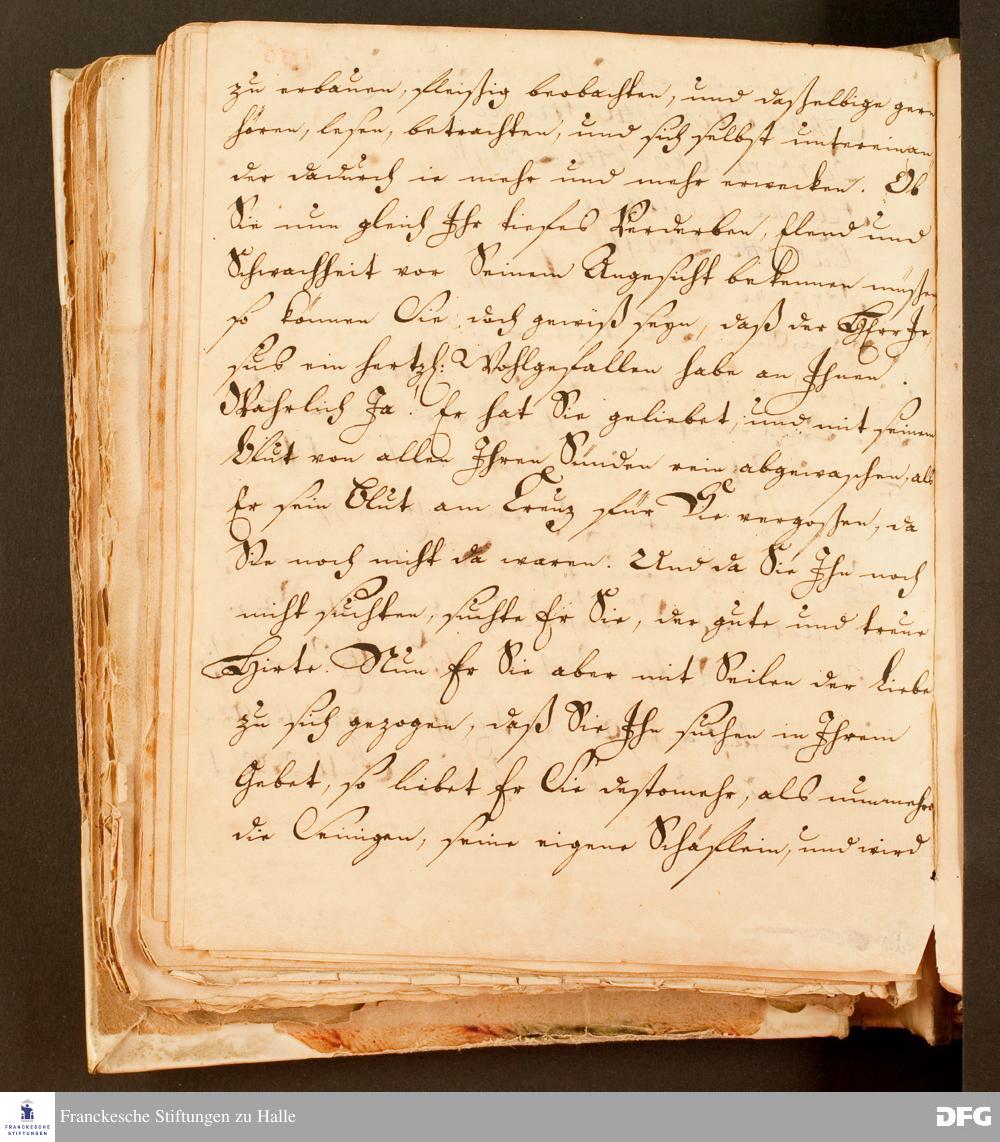 zu erbauen, fleißig beobachten, und daßelbige gern
hören, lesen, betrachten, und sich selbst untereinan
der dadurch ie mehr und mehr erwecken. Ob
Sie nun gleich Ihr tiefes Verderben, Elend und
Schwachheit vor Seinem Angesicht bekennen müßen
so können Sie doch gewiß seyn, daß der HErr Je,
sus ein hertzl: Wohlgefallen habe an Ihnen.
Wahrlich Ja! Er hat Sie geliebet, und mit seinem
Blut von allen Ihren Sünden rein abgewaschen, als
Er sein Blut am Creuz für Sie vergoßen, da
Sie noch nicht da waren. Und da Sie Ihn noch
nicht suchten, suchte Er Sie, der gute und treue
Hirte. Nun Er Sie aber mit Seilen der Liebe
zu sich gezogen, daß Sie Ihn suchen in Ihrem
Gebet, so liebet Er Sie destomehr, als nunmehro
die Seinigen, seine eigene Schäflein, und wird
Franckesche Stiftungen zu Halle
FRANCKESCHE
STIFTUNGEN
DFG